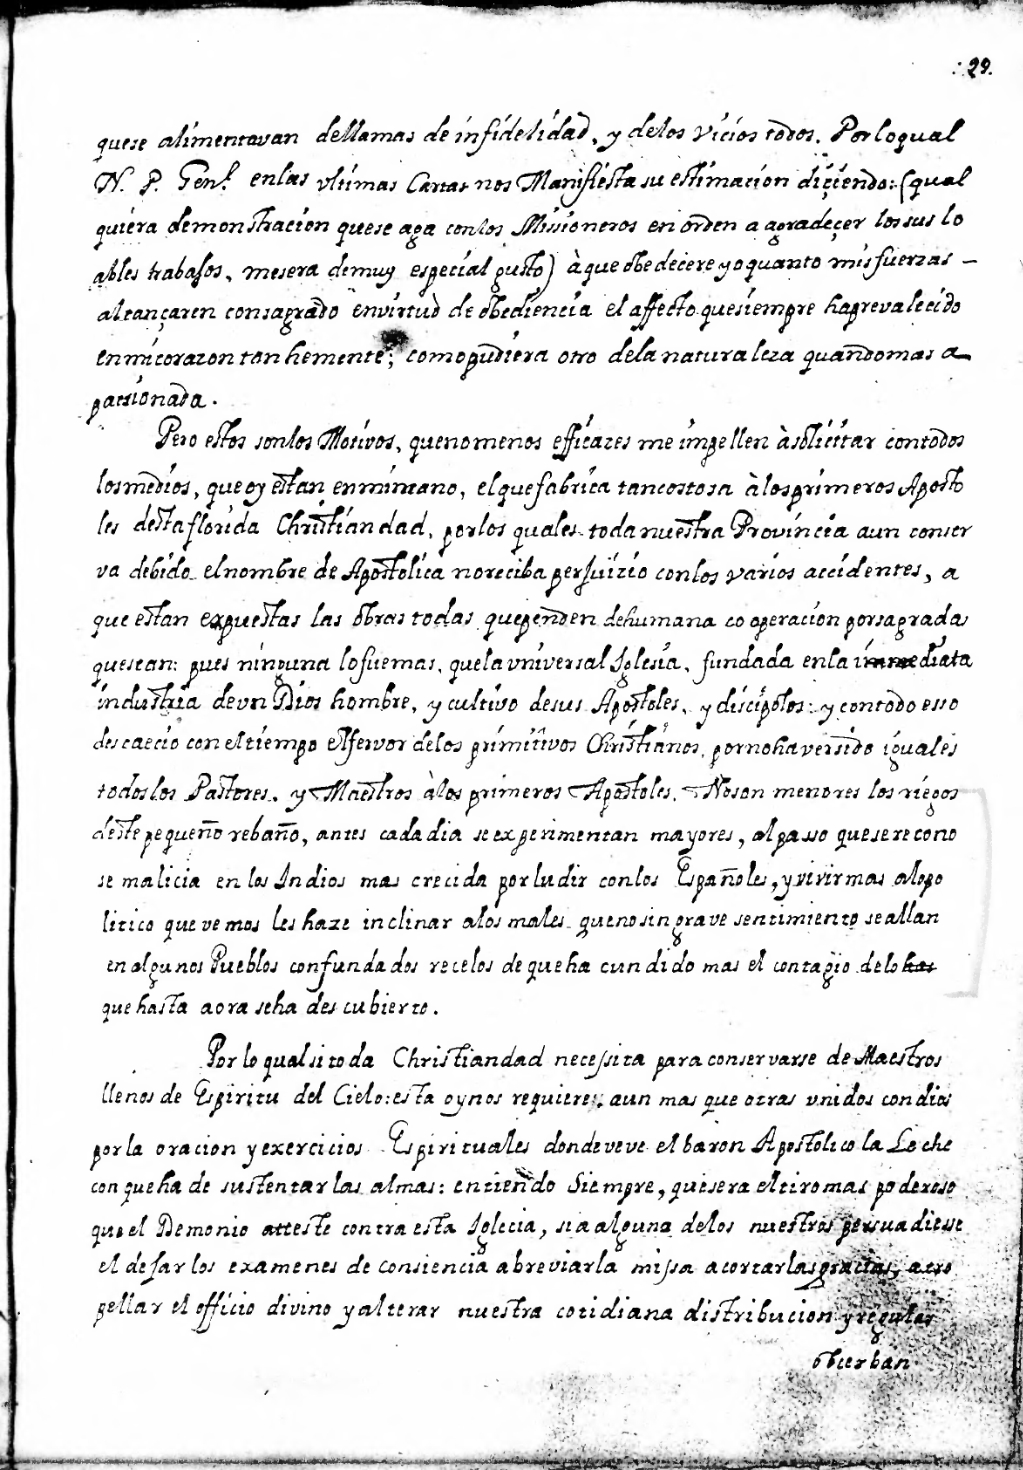 29.
quese alimentavan dellamas de infidelidad, y delos Vicios todos. Porloqual
N. P. Genl. enlas vltimas Cartas nos Manifiesta su estimacion diçiendo: (qual
quiera demonstracion quese aga conlos Missioneros en orden a agradeçer lossus lo
ables trabajos, mesera demuy especial gusto) à que obedecere yo quanto mis fuerzas –
alcançaren consagrado envirtud de obediencia el affecto quesiempre haprevalecido
enmicorazon tan hemente; comopudiera otro dela naturaleza quandomas a
passionada.
Pero estos sonlos Motivos, quenomenos efficazes me impellen àsolicitar contodos
losmedios, que oy estan enmimano, elquefabrica tancostosa àlosprimeros Aposto
les destaflorida Christiandad, porlos quales toda nuestra Provincia aun conser
va debido elnombre de Apostolica noreciba perjuizio conlos varios accidentes, a
que estan expuestas las obras todas quependen dehumana cooperacion porsagradas
quesean: pues ninguna lofuemas, quela vniversal Iglesia, fundada enla immediata
industria devn Dios hombre, y cultivo desus Apostoles, y discipolos: y contodo esso
descaecio con eltiempo elfervor delos primitivos Christianos, pornohaversido iguales
todoslos Pastores, y Maestros àlos primeros Apostoles. Noson menores los riegos
deste pequeño rebaño, antes cada dia se experimentan mayores, alpasso quesereconо
se malicia en los Indios mas crecida porludir conlos Españoles, y vivirmas alopo
litico que vemos les haze inclinar alos males quenosingrave sentimiento seallan
enalgunos Pueblos confundados recelos de queha cundido mas el contagio delo
que hasta aora seha descubierto.
Por lo qual si toda Christiandad necessita para conservarse de Maestros
llenos de Espiritu del Cielo: esta oynos requiere; aun mas que otras vnidos con dios
porla oracion y exercicios Espirituales donde veve el baron Apostolico la Leche
con que ha de sustentar las almas: entiendo Siempre, quesera eltiro mas poderoso
que el Demonio atteste contra esta Iglecia, si a alguna delos nuestros persuadiesse
el dejar los examenes de consiencia abreviarla missa acortarlasgracias, atro
pellar el officio divino y alterar nuestra cotidiana distribucion y regular
obserban